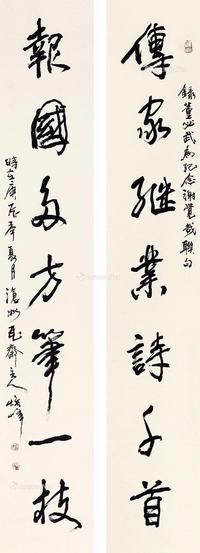 傳家繼業詩千首
錄董必武為紀念謝覺哉聯句
報國多方筆一枝
時在庚辰年夏月滄州瓦齋主人